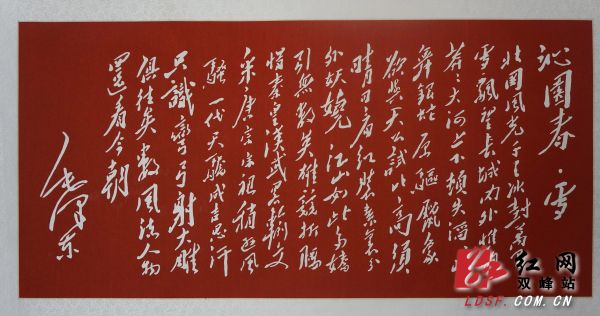 沁園春·雪
北國風光千里冰封萬里
雪飄望長城內外惟餘
莽〻大河上下頓失滔
舞銀蛇原驅臘象
欲與天公試比高須
晴日看紅裝素裹分
外妖嬈江山如此多嬌
引無數英雄競折腰
惜秦皇漢武略輸文
采唐宗宋祖稍遜風
騷一代天驕成吉思汗
只識彎弓射大雕
俱往矣數風流人物
還看今朝
毛澤東
红网
双峰站
LDSF.COM.CN